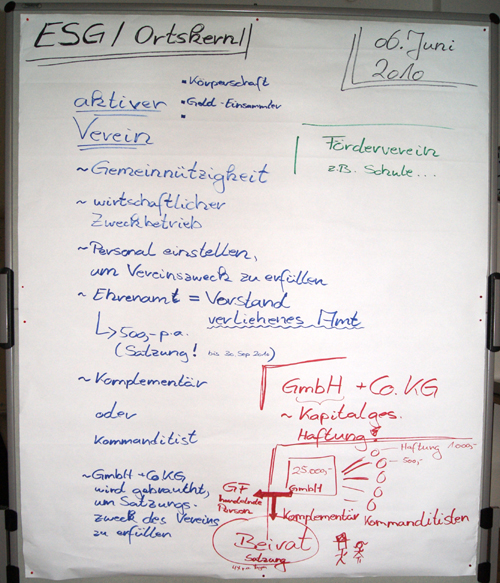 ESG / Ortskern
06. Juni
2010
• Körperschaft
• Geld-Einsammler
•
aktiver
Verein
~ Gemeinnützigkeit
~ wirtschaftlicher
Zweckbetrieb
~ Personal einstellen,
um Vereinszweck zu erfüllen
~ Ehrenamt = Vorstand
verliehenes Amt
↳ 500,- p.a.
(Satzung! bis 30. Sep 2010)
~ Komplementär
oder
Kommanditist
~ GmbH + Co KG,
wird gebraucht,
um Satzungs-
zweck des Vereins
zu erfüllen
Förderverein
z.B. Schule...
GmbH + Co. KG
~ Kapitalges.
Haftung!
Haftung 1000,-
500,-
25.000,-
GmbH
GF
handelnde
Person
Komplementär
Kommanditisten
Beirat
Satzung